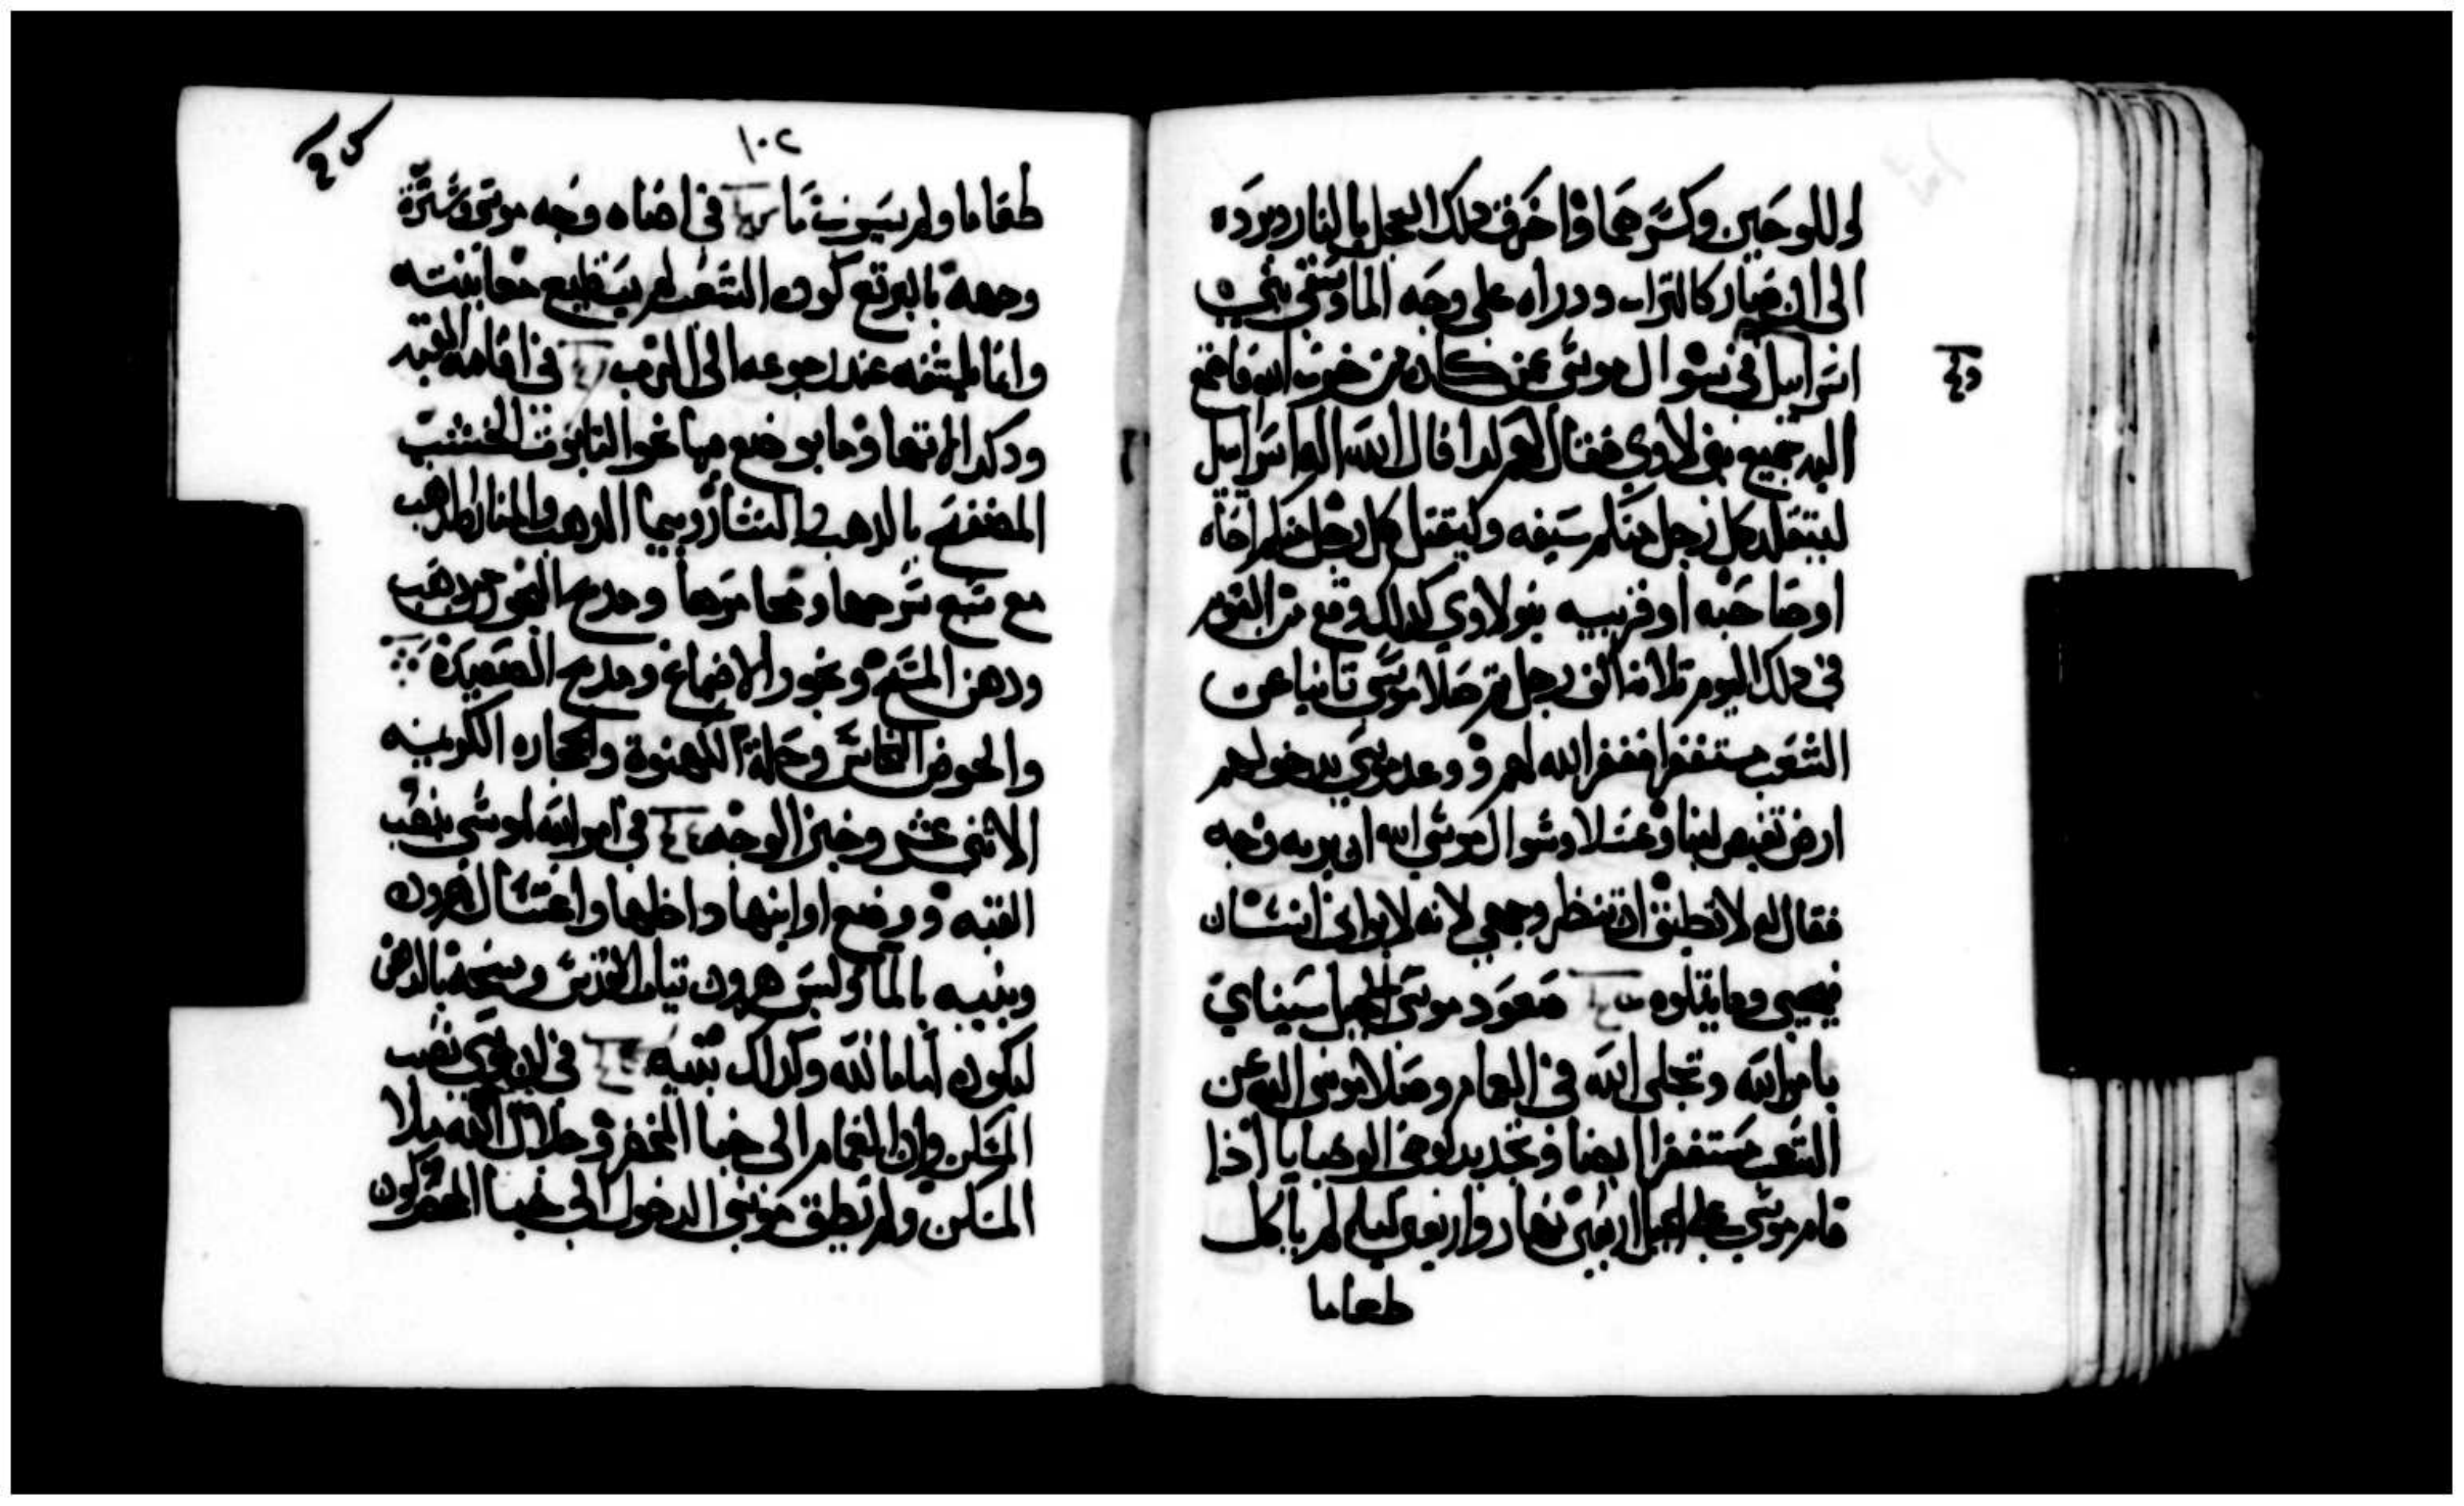 لوللوحين وكسرهما واحرق دلك العجل بالنار وبرده
الى ان صار كالتراب ودراه على وجه الما وسقى بني
اسراييل في سوال موسى عمن كان من حزب الله فاجتمع
اليه جميع بنى لاوي فقال لهم لدا قال الله اله اسراييل
ليتقلد كل رجل منكم سيفه وليقتل كل رجل منكم اخاه
او صاحبه او قريبه بنو لاوي كدلك وقع من القوم
في دلك اليوم تلاتة الف رجل تم صلا موسى تانيا عن
الشعب مستغفرا فغفر الله لهم ووعد موسى بدخولهم
ارض تفيض لبنا وعسلا وسوال موسي الله ان يريه وجهه
فقال له لا تطيق ان تنظر وجهي لانه لا يراني انسان
فيحيى وما يتلوه صعود موسى الجبل سيناي
بامر الله وتجلى الله في الغمام وصلا موسى اليه عن
الشعب مستغفرا ايضا وتجديد لوحى الوصايا اذا
قام موسى على الجبل اربعين نهار واربعين ليله لم ياكل
طعاما
وع
١٠٢
طعاما ولم يشرب ما في اضاه وجه موسى وسترة
وجهه بالبرقع لكون الشعب لم يستطيع معاينته
وانما يكشفه عند رجوعه الى الرب في اقامة القبه
ودكر الاتها وما يوضع فيها نحو التابوت الخشب
المصفح بالدهب والستار وسيما الدهب والمناره الدهب
مع سبع سرجها ومجامرها ومدبح البخور من دهب
ودهن المسح وبخور الاضماغ ومدبح الصعيدة
والحوض النحاس وحلة الكهنوة والحجاره الكريمه
الاثنى عشر وخبز الوجه في امر الله لموسى بنصب
القبه ووضع اوانيها داخلها واغتسال هرون
وبنيه بالما ولبس هرون تياب القدس ومسحه بالدهن
ليكون اماما لله وكدلك بنيه في ان موسى نصب
المسكن وان الغمام الى خبا المحضر وجلال الله ملا
المسكن ولم تطيق موسى الدخول الى خبا المحضر لكون